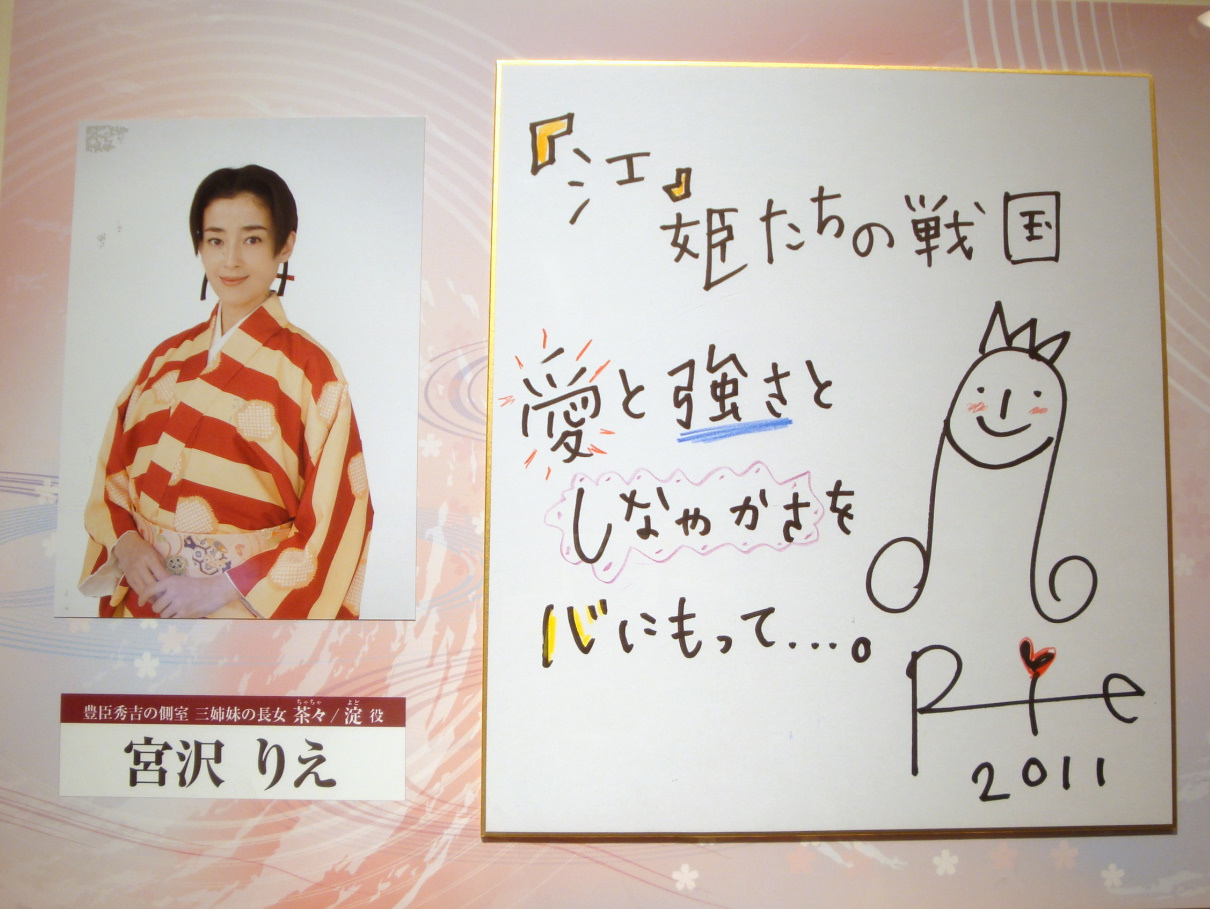 豊臣秀吉の側室 三姉妹の長女 茶々/淀 役
ちゃちゃ よど
宮沢 りえ
『江』
姫たちの戦国
愛と強さと
しなやかさを
心にもって...。
Rie
2011